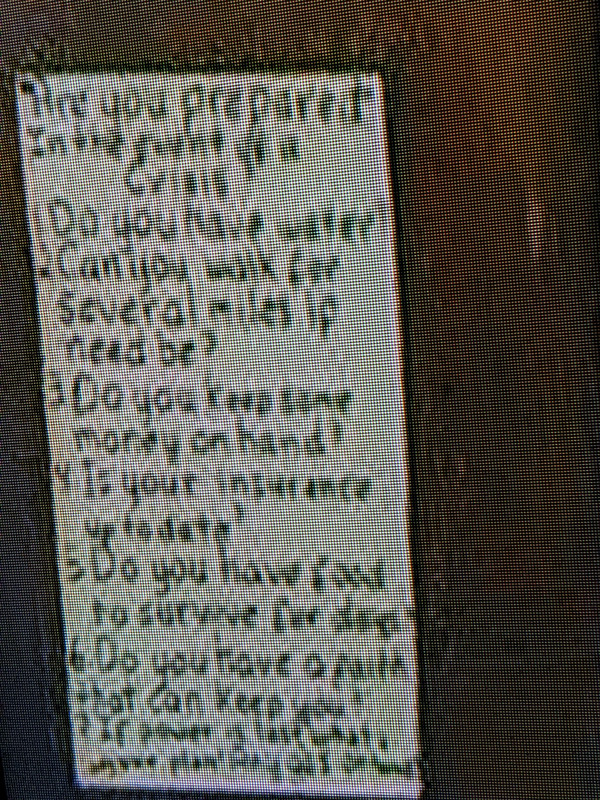 Are you prepared
In the event of a
Crisis?
1 Do you have water
2 Can you walk for
several miles if
need be?
3 Do you keep some
money on hand?
4 Is your insurance
up to date?
5 Do you have food
to survive for days
6. Do you have a
that can keep you
7 If power is lost what
your plan?